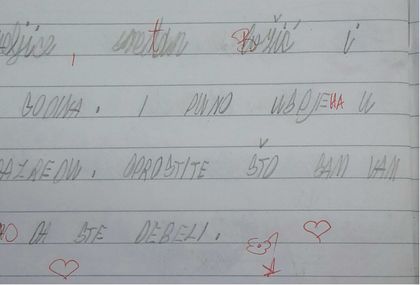 eljice, sretan Božić i
GODINA. I PUNO USPJEHA U
AZREDU. OPROSTITE ŠTO SAM VAM
O DA STE DEBELI.